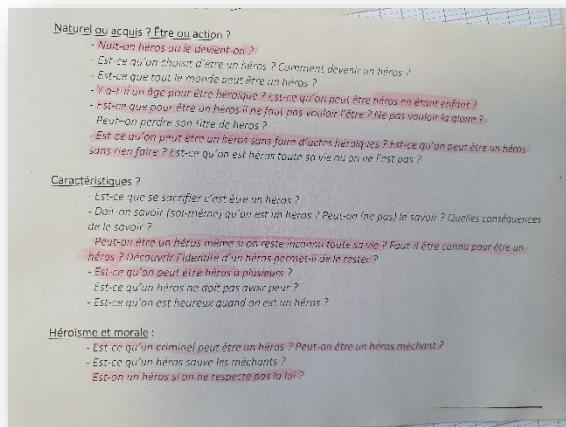 Naturel ou acquis ? Être ou action ?
- Naît-on héros ou le devient-on ?
- Est-ce qu'on choisit d'être un héros ? Comment devenir un héros ?
- Est-ce que tout le monde peut être un héros ?
- Y a-t-il un âge pour être héroïque ? Est-ce qu'on peut être héros en étant enfant ?
- Est-ce que pour être un héros il ne faut pas vouloir l'être ? Ne pas vouloir la gloire ?
- Peut-on perdre son titre de héros ?
- Est-ce qu'on peut être un héros sans faire d'actes héroïques ? Est-ce qu'on peut être un héros
sans rien faire ? Est-ce qu'on est héros toute sa vie ou on ne l'est pas ?
Caractéristiques ?
- Est-ce que se sacrifier c'est être un héros ?
- Doit-on savoir (soi-même) qu'on est un héros ? Peut-on (ne pas) le savoir ? Quelles conséquences
de le savoir ?
- Peut-on être un héros même si on reste inconnu toute sa vie ? Faut-il être connu pour être un
héros ? Découvrir l'identité d'un héros permet-il de le rester ?
- Est-ce qu'on peut être héros à plusieurs ?
- Est-ce qu'un héros ne doit pas avoir peur ?
- Est-ce qu'on est heureux quand on est un héros ?
Héroïsme et morale :
- Est-ce qu'un criminel peut être un héros ? Peut-on être un héros méchant ?
- Est-ce qu'un héros sauve les méchants ?
- Est-on un héros si on ne respecte pas la loi ?